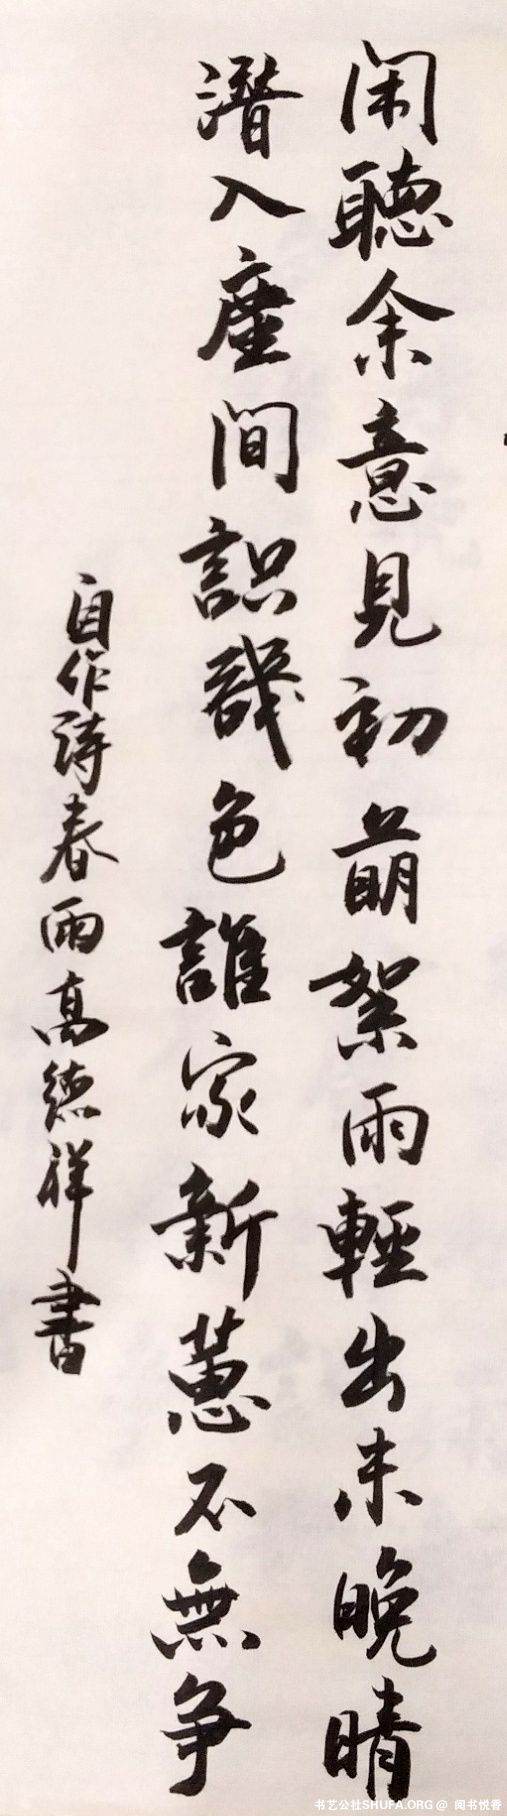 闲聽余意見初萌絮雨輕出未晚晴
潛入座間識識色誰家新蔥不無争
自作詩春雨高德祥書
书艺公社SHUFA.ORG @ 阅书悦香